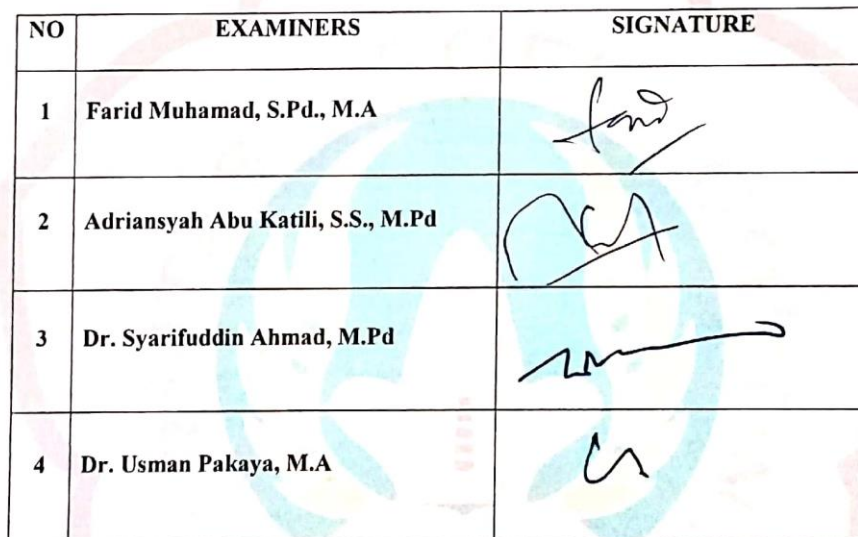 NO EXAMINERS SIGNATURE
1 Farid Muhamad, S.Pd., M.A
2 Adriansyah Abu Katili, S.S., M.Pd
3 Dr. Syarifuddin Ahmad, M.Pd
4 Dr. Usman Pakaya, M.A